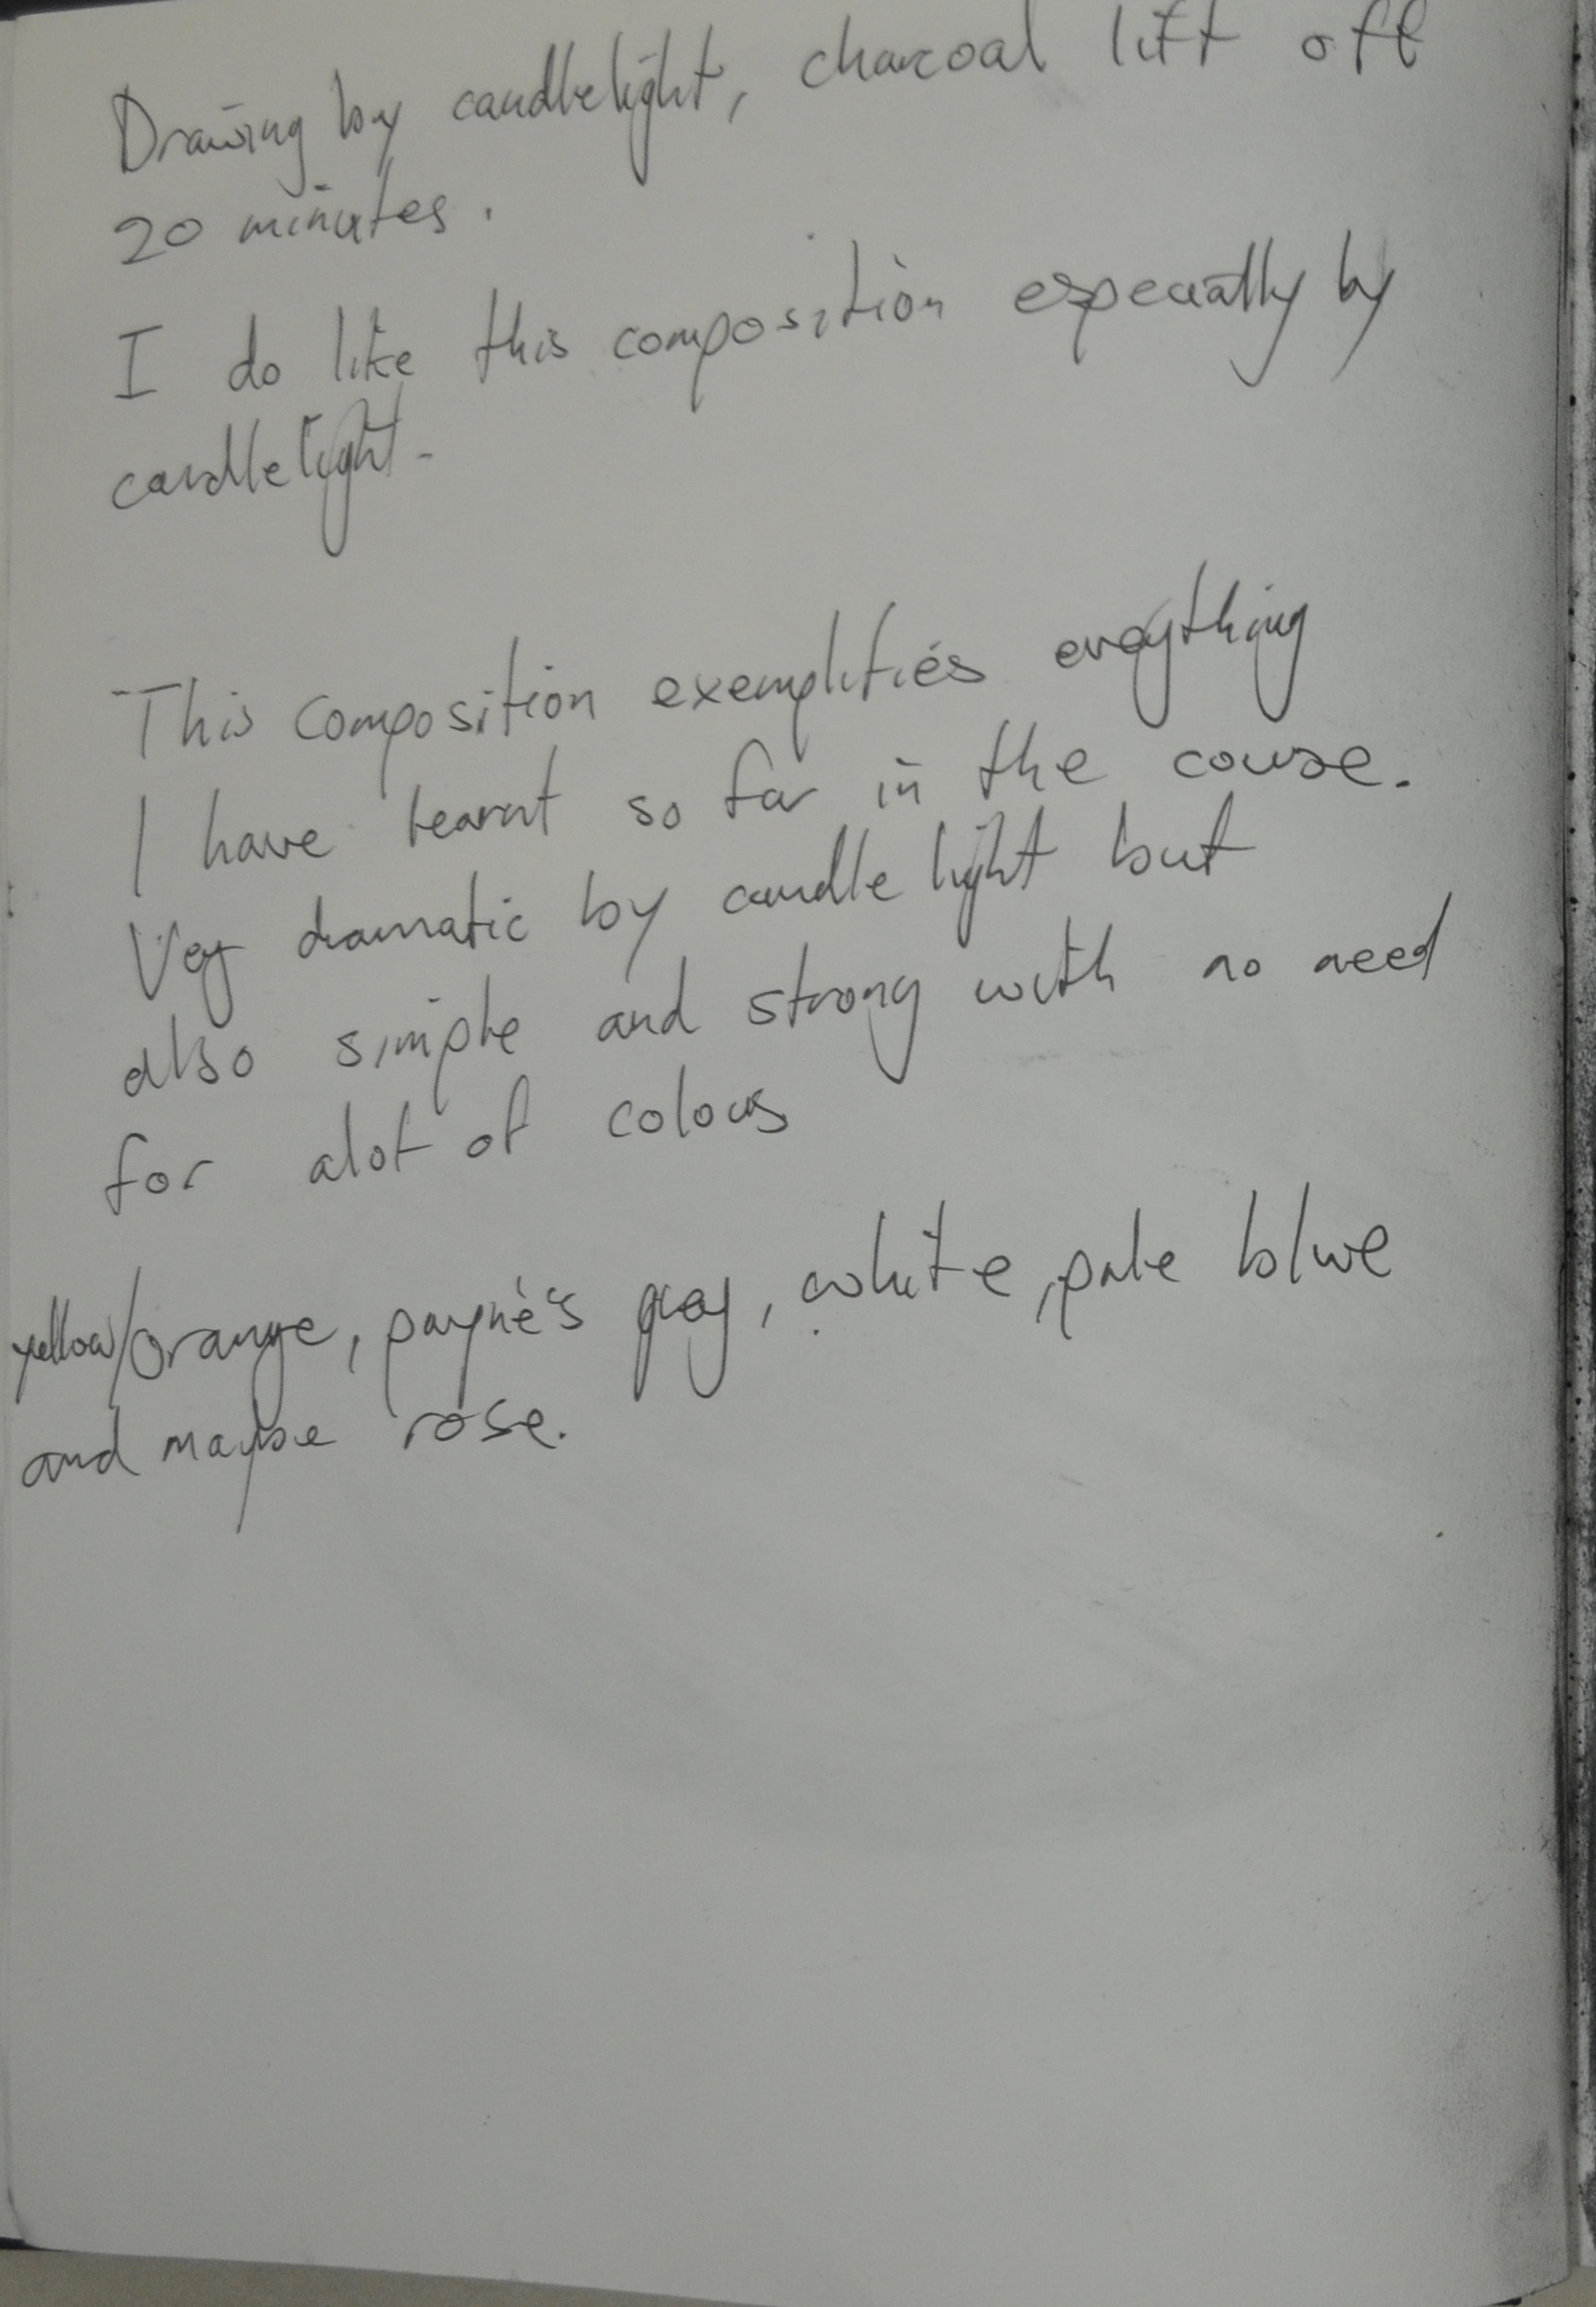 Drawing by candlelight, charcoal lift off
20 minutes.
I do like this composition especially by
candlelight.
This composition exemplifies everything
I have learnt so far in the course.
Very dramatic by candle light but
also simple and strong with no need
for alot of colours
yellow/orange, payne's grey, white, pale blue
and maybe rose.